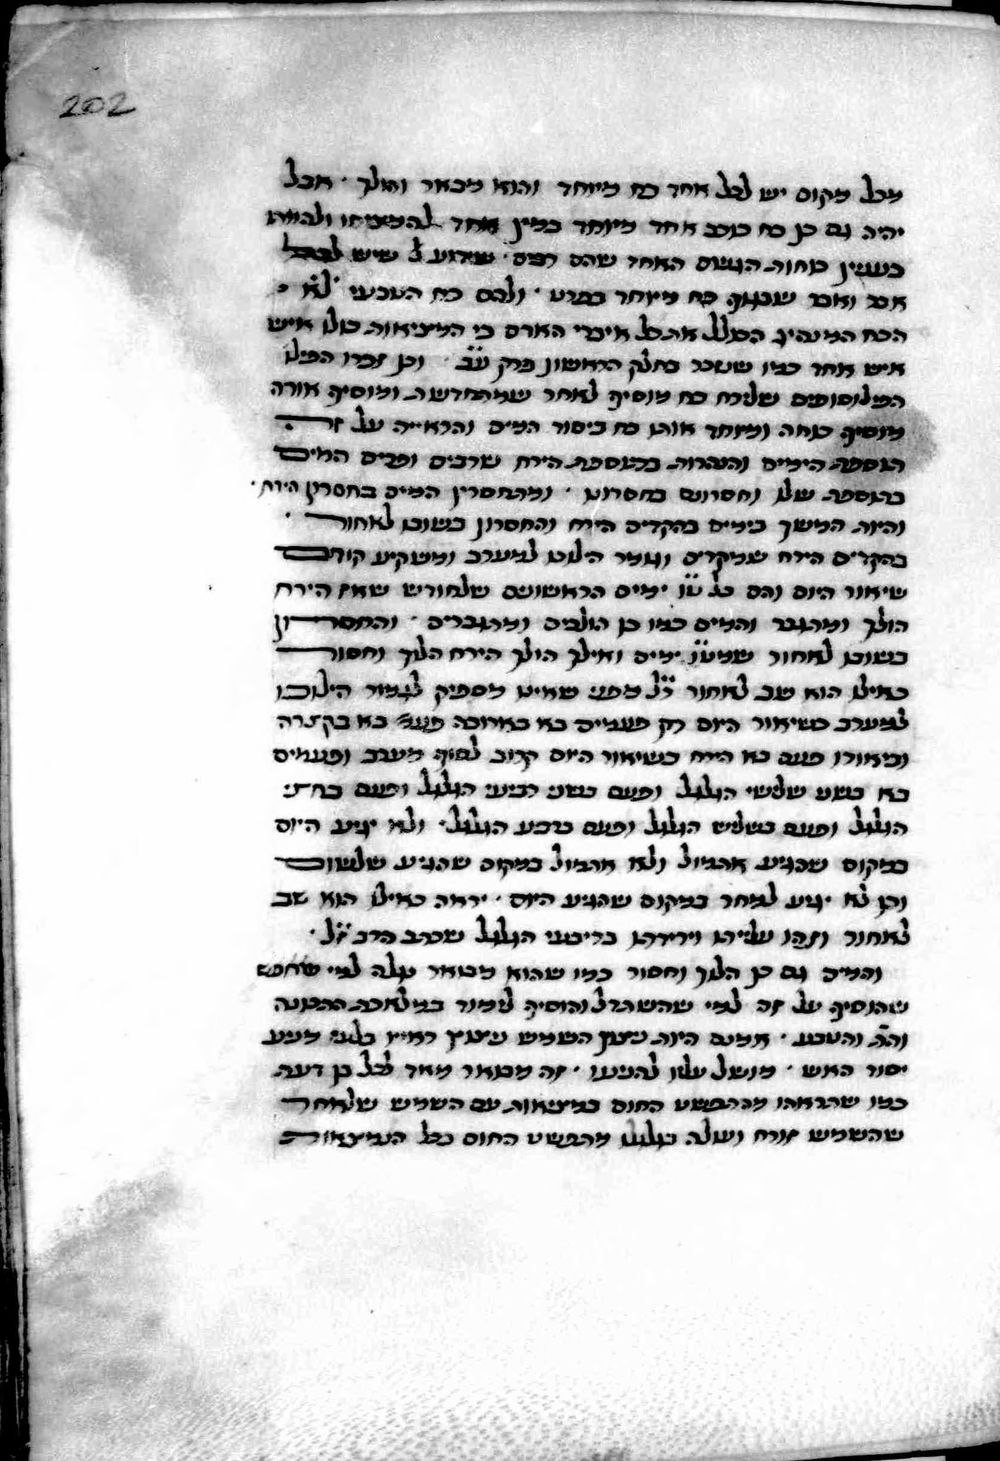 202
מכל מקום יש לכל אחד כח מיוחד והוא מבואר והולך · אבל
יהיה גם כן כח כוכב אחד מיוחד במין אחד להמציאו ולהוותו
כענין כוחות הגשם האחד שהם רבים · שידוע לך שיש לכל
אבר ואבר שבגוף כח מיוחד בפרט · ולהם כח הטבעי לא
הכח המנהיג הכולל את כל איברי האדם כי המציאות כולו איש
איש אחד כמו שנזכר בחלק הראשון פרק ע״ב · וכן זכרו הפילו
הפילוסופים שלירח כח מוסיף לאחר שמתחדשת ומוסיף אורה
מוסיף כוחה ומיוחד אותו כח ביסוד המים והראייה על זה
תוספת הימים והנהרות בתוספת הירח שרבים ופרים המים
בתוספת שלו וחסרונם בחסרונו · ומתחסרין המים בחסרון הירח ·
והיות המשך הימים בהקדים הירח והחסרון בשובו לאחור ·
בהקדים הירח שמקדים וגומר הילוכו למערב ומשקיע קודם
שיאור היום והם כל ט״ו ימים הראשונים שלחודש שאז הירח
הולך ומתגבר והמים כמו כן הולכים ומתגברים · והחסרון
בשובו לאחור שמט״ו ימים ואילך הולך הירח הלוך וחסור
כאילו הוא שב לאחור ר״ל מפני שאינו מספיק לגמור הילוכו
למערב כשיאור היום רק פעמים בא בארוכה פעם בא בקצרה
וביאורו פעם בא הירח כשיאור היום קרוב לסוף מערב ופעמים
בא בשני שלישי הגלגל ופעם בשני רביעי הגלגל ופעם בחצי
הגלגל ופעם בשליש הגלגל ופעם ברבע הגלגל · ולא יגיע היום
במקום שהגיע אתמול ולא אתמול במקום שהגיע שלשום
וכן לא יגיע למחר במקום שהגיע היום · יראה כאילו הוא שב
לאחור וזהו עלייתו וירידתו ברביעי הגלגל שכתב הרב ז״ל ·
והמים גם כן הלוך וחסור כמו שהוא מבואר נגלה למי שחפש
שהוסיף על זה למי שהשתדל והוסיף לימוד במלאכת התכונה
והטבע · אמנם היות ניצוץ השמש מניע
יסוד האש · מושל עליו להניעו · זה מבואר מאד לכל בן דעת
כמו שתראהו מהתפשט החום במציאות עם השמש שלאחר
שהשמש זורח ועולה בגלגלו מתפשט החום בכל הנמצאות